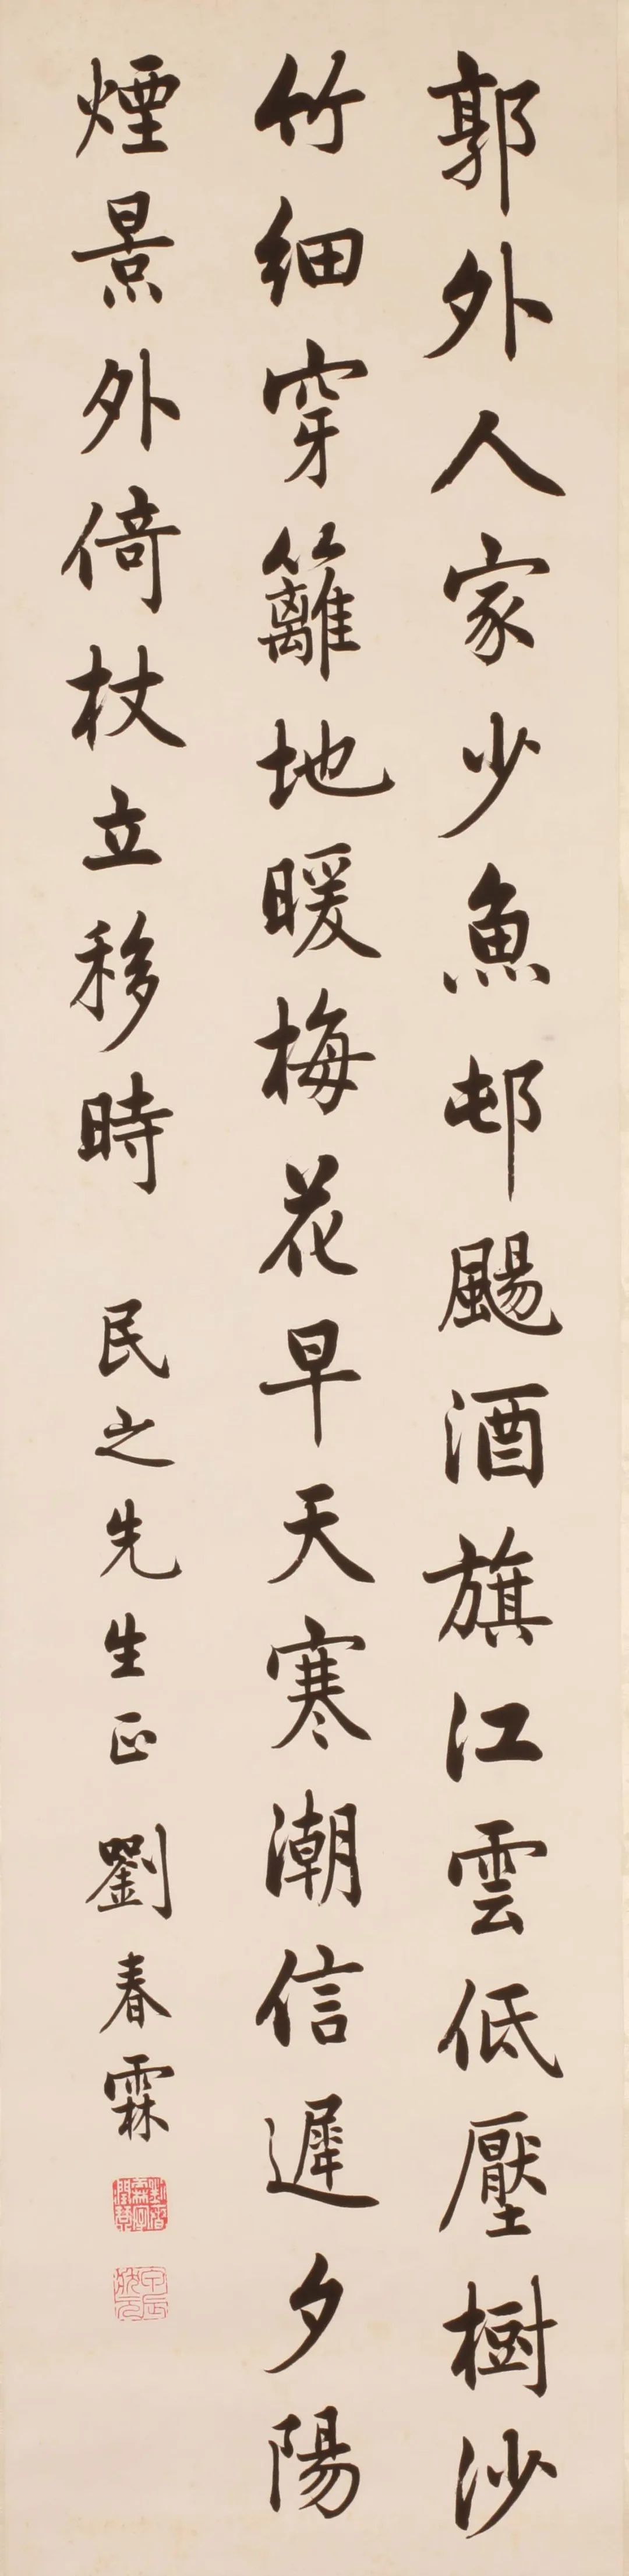 郭外人家少魚邨颺酒旗江雲低壓樹沙
竹細穿籬地暖梅花早天寒潮信遲夕陽
煙景外倚杖立移時
民之先生正 劉春霖